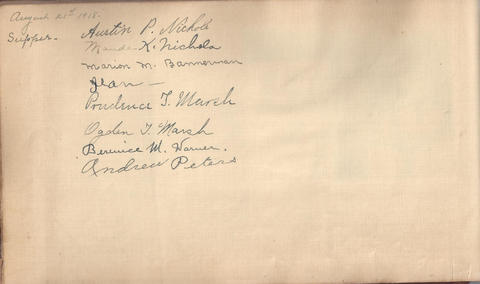 August 21st 1918.
Supper. Austin P. Nichols
Maude K. Nichols
Marion M. Bannerman
Jean —
Prudence T. Marsh
Ogden T. Marsh
Berenice M. Warner.
Andrew Peters